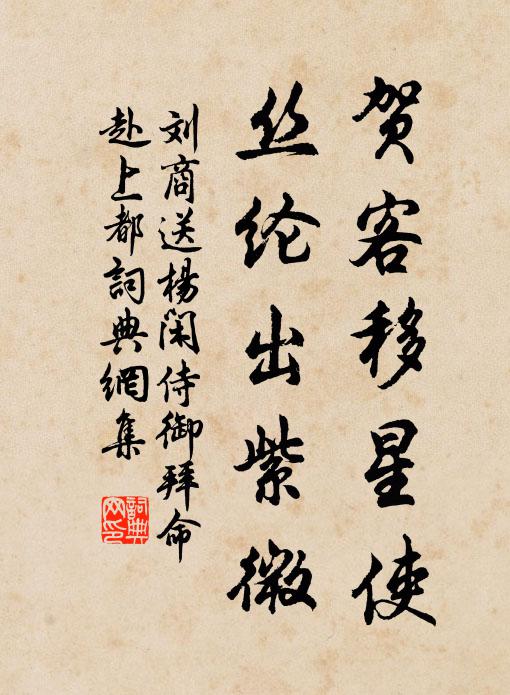 贺客移星使
丝纶出紫微
刘商送楊闲侍御拜命
赴上都詞典網集
詞典网印